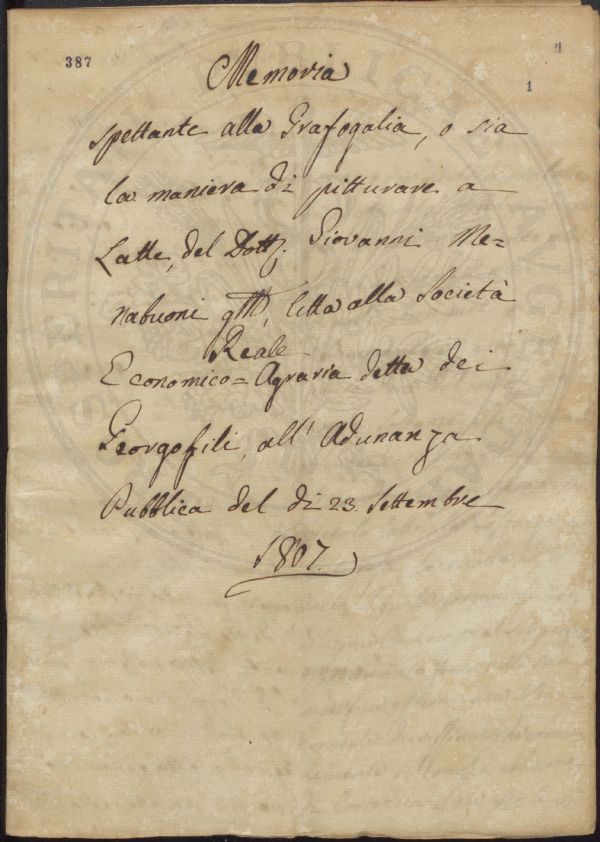 387
1
1
Memoria
spettante alla Grafogalia, o sia
la maniera di pitturare a
Latte, del Dott. Giovanni Me=
nabuoni letta alla Società
Reale
Economico=Agraria detta dei
Georgofili, all' Adunanza
Pubblica del dì 23. Settembre
1807.